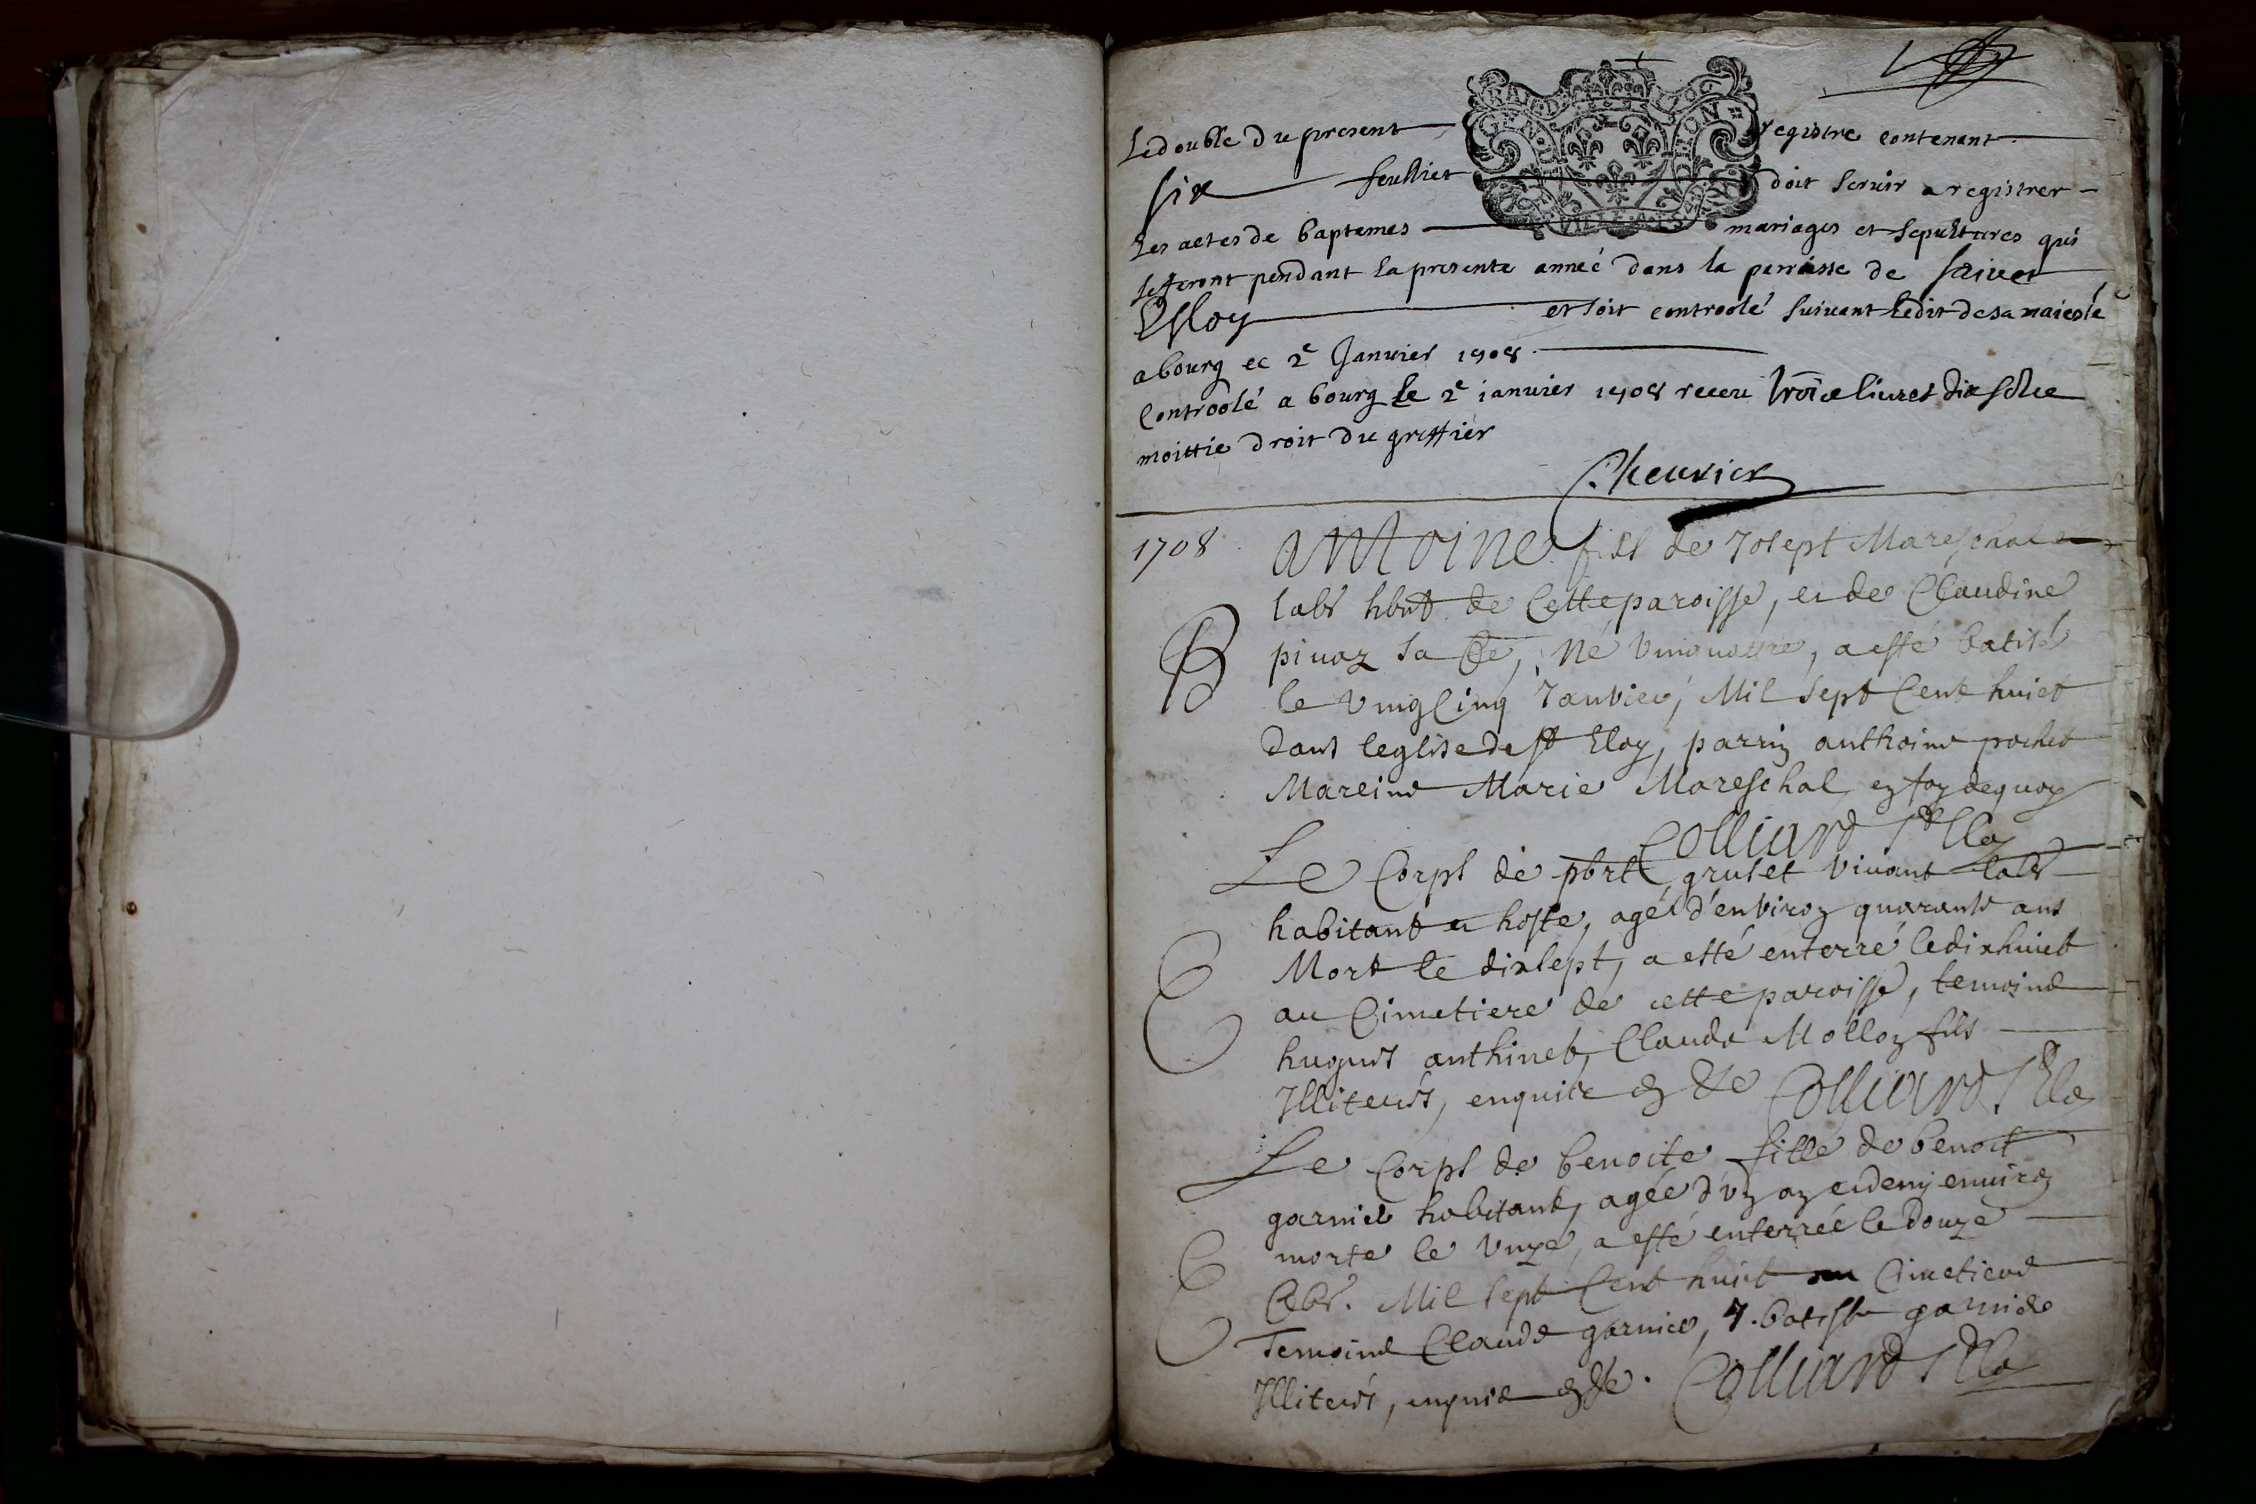 Le double du present registre contenant
six feulliet doit servir a registrer
les actes de baptemes mariages et sepultures qui
se feront pendant la presente anneé dans la parroisse de sainct
Elloy et soit controolé suivant ledit de sa maiesté
a bourg ce 2e Janvier 1708
Controolé a bourg le 2e ianvier 1708 receu trois livres dix solz
moittie droit du greffier
Chevrier
1708
antoine fils de Josept Mareschal
labr hbnt de Cette paroisse, et de Claudine
pivoz sa fe, Né vinquattre, a esté batisé
le vingcinq Janvier, Mil sept Cent huict
B
dans leglise de st Eloy, parrin anthoine pochet
Mareine Marie Mareschal en foy de quoy
Colliard
Le Corps de gruset vivant labr
habitant hoste, agé d'environ quarante ans
Mort le dixsept, a esté enterré le dixhuict
au Cimetiere de cette paroisse, temoins
E
hugues anthinet, Claude Molloz fils
Illiterés, enquis Colliard
Le Corps de benoite fille de benoit
garnier habitant, agée d'un an et demy environ
morte le unze, a esté enterrée le douze
E
Mil sept Cent huict au Cimetiere
Temoins Claude garnier, J. batiste garnier
Illiterés, enquis Colliard